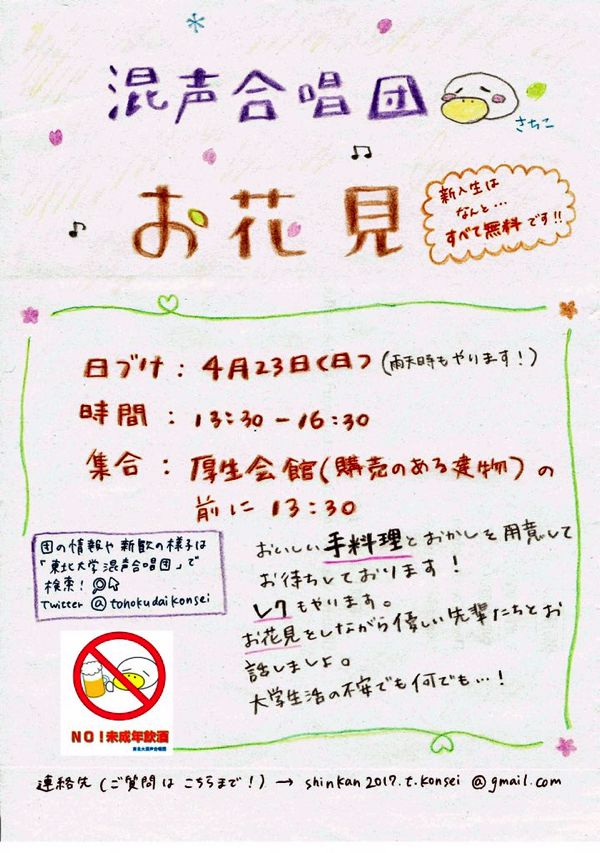 混声合唱団
さちこ
お花見
新入生は
なんと…
すべて無料です!!
日づけ : 4月23日(日) (雨天時もやります!)
時間 : 13:30-16:30
集合 : 厚生会館(購売のある建物)の
前に 13:30
団の情報や新歓の様子は
「東北大学混声合唱団」で
検索!
Twitter @tohokudaikonsei
おいしい手料理とおかしを用意して
お待ちしております!
レクもやります。
お花見をしながら優しい先輩たちとお
話しましよ。
大学生活の不安でも何でも…!
NO!未成年飲酒
東北大混声合唱団
連絡先(ご質問はこちらまで!)→ shinkan2017.t.konsei@gmail.com